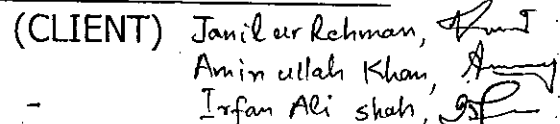 (CLIENT) Jamil ur Rehman,
Amin ullah Khan,
- Irfan Ali shah,